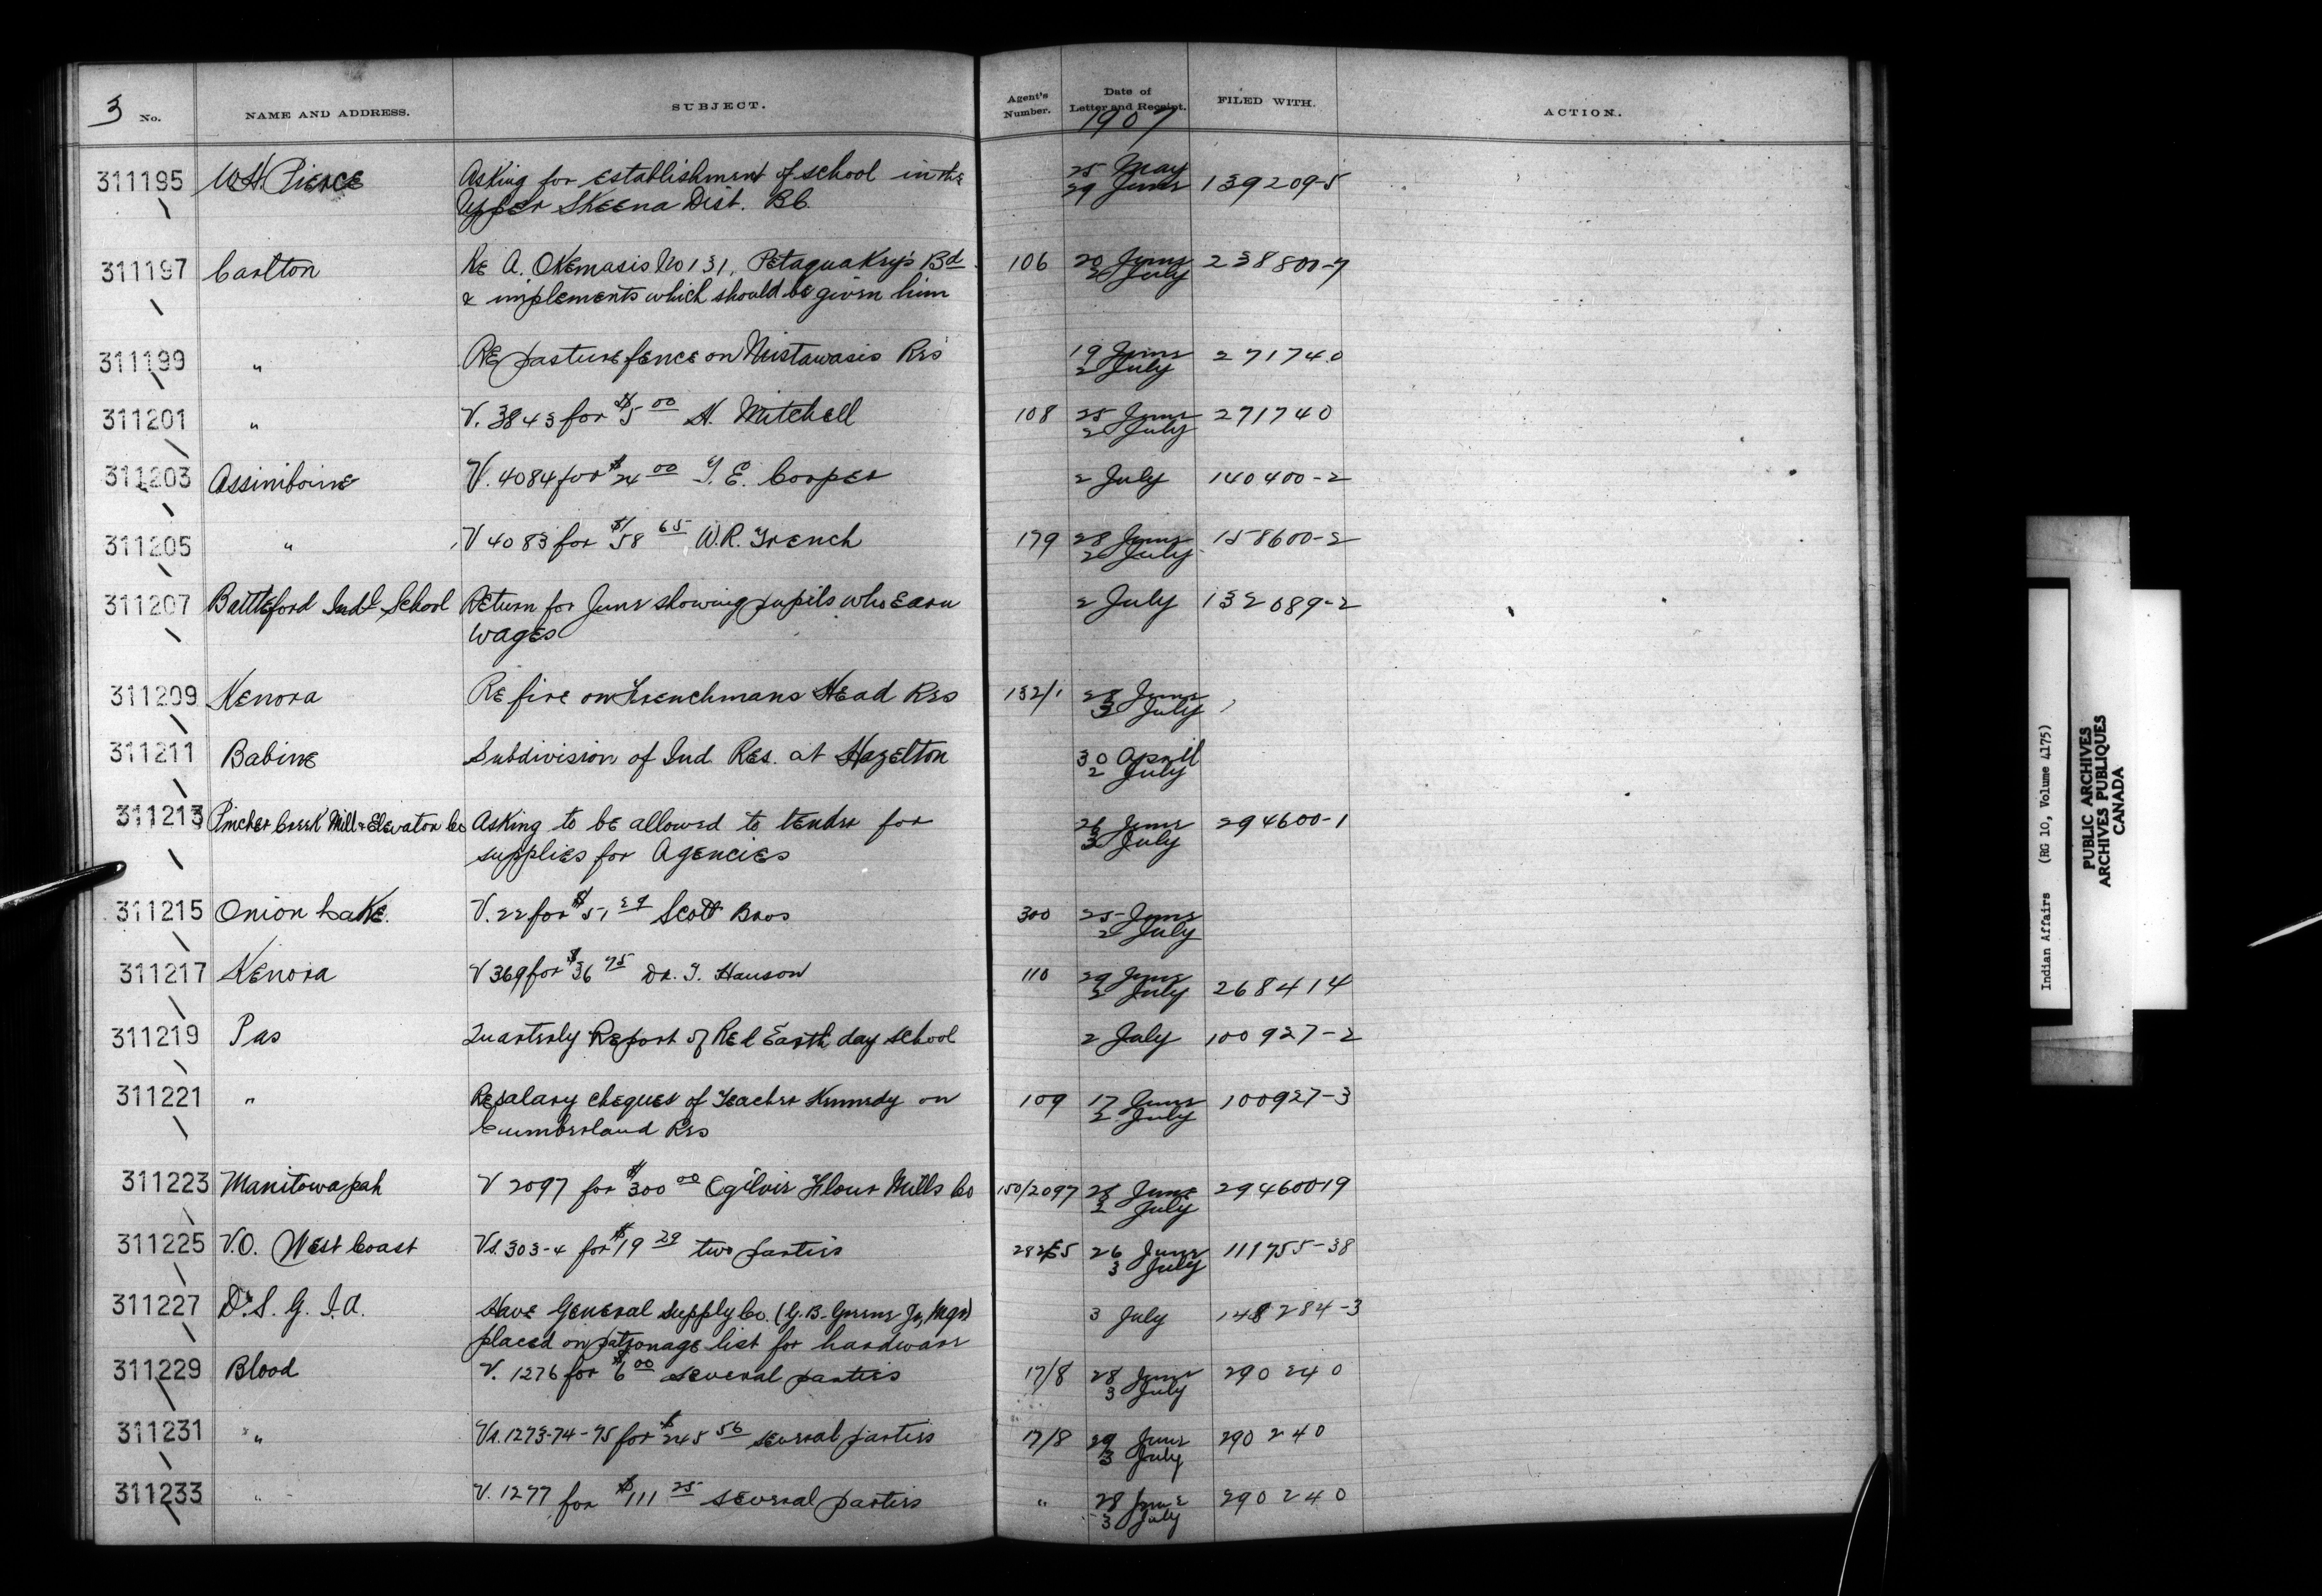 3 No. NAME AND ADDRESS. SUBJECT. Agent's Number. Date of Letter and Receipt. 1907 FILED WITH. ACTION.
311195 W.H. Pierce Asking for establishment of school in the 25 May 139209-5
Upper Skeena Dist. B.C. 29 June
311197 Carlton Re A. Okemasis No 131, Petaquakey's Bd 106 20 June 238800-7
& implements which should be given him 2 July
311199 " Re pasture fence on Mistawasis Res 19 June 271740
2 July
311201 " V. 3843 for $5 00 H. Mitchell 108 25 June 271740
2 July
311203 Assiniboine V. 4084 for $24 00 T. E. Cooper 2 July 140400-2
311205 " V 4083 for $58 65 W.R. French 179 28 June 158600-2
2 July
311207 Battleford Indl School Return for June showing pupils who earn 2 July 132089-2
wages
311209 Kenora Re fire on Frenchmans Head Res 132/1 28 June
3 July
311211 Babine Subdivision of Ind. Res. at Hazelton 30 April
2 July
311213 Pincher Creek Mill & Elevator Co Asking to be allowed to tender for 26 June 294600-1
supplies for Agencies 3 July
311215 Onion Lake. V. 22 for $51 29 Scott Bros 300 25 June
2 July
311217 Kenora V 369 for $36 75 Dr. T. Hanson 110 29 June
2 July 268414
311219 Pas Quarterly Report of Red Earth day school 2 July 100927-2
311221 " Re salary cheques of Teacher Kennedy on 109 17 June 100927-3
Cumberland Res 2 July
311223 Manitowapah V 2097 for $300 00 Ogilvie Flour Mills Co 150/2097 28 June 29460019
2 July
311225 V.O. West Coast Vs. 303-4 for $19 29 two parties 26 June 111755-38
3 July
311227 D.S. G. I.A. Have General Supply Co. (G.B. Greene Jr, Mgr) 3 July 148284-3
placed on patronage list for hardware
311229 Blood V. 1276 for $6 00 several parties 17/8 28 June 290240
3 July
311231 " Vs. 1273-74-75 for $245 56 several parties 17/8 29 June 290240
3 July
311233 " V. 1277 for $111 25 several parties " 28 June 290240
3 July
Indian Affairs (RG 10, Volume 4175)
PUBLIC ARCHIVES
ARCHIVES PUBLIQUES
CANADA